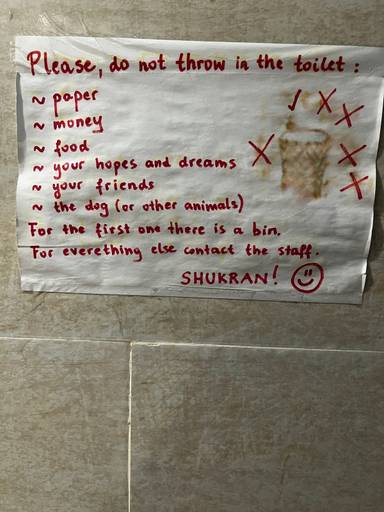 Please, do not throw in the toilet :
~ paper
~ money
~ food
~ your hopes and dreams
~ your friends
~ the dog (or other animals)
For the first one there is a bin.
For everething else contact the staff.
SHUKRAN!